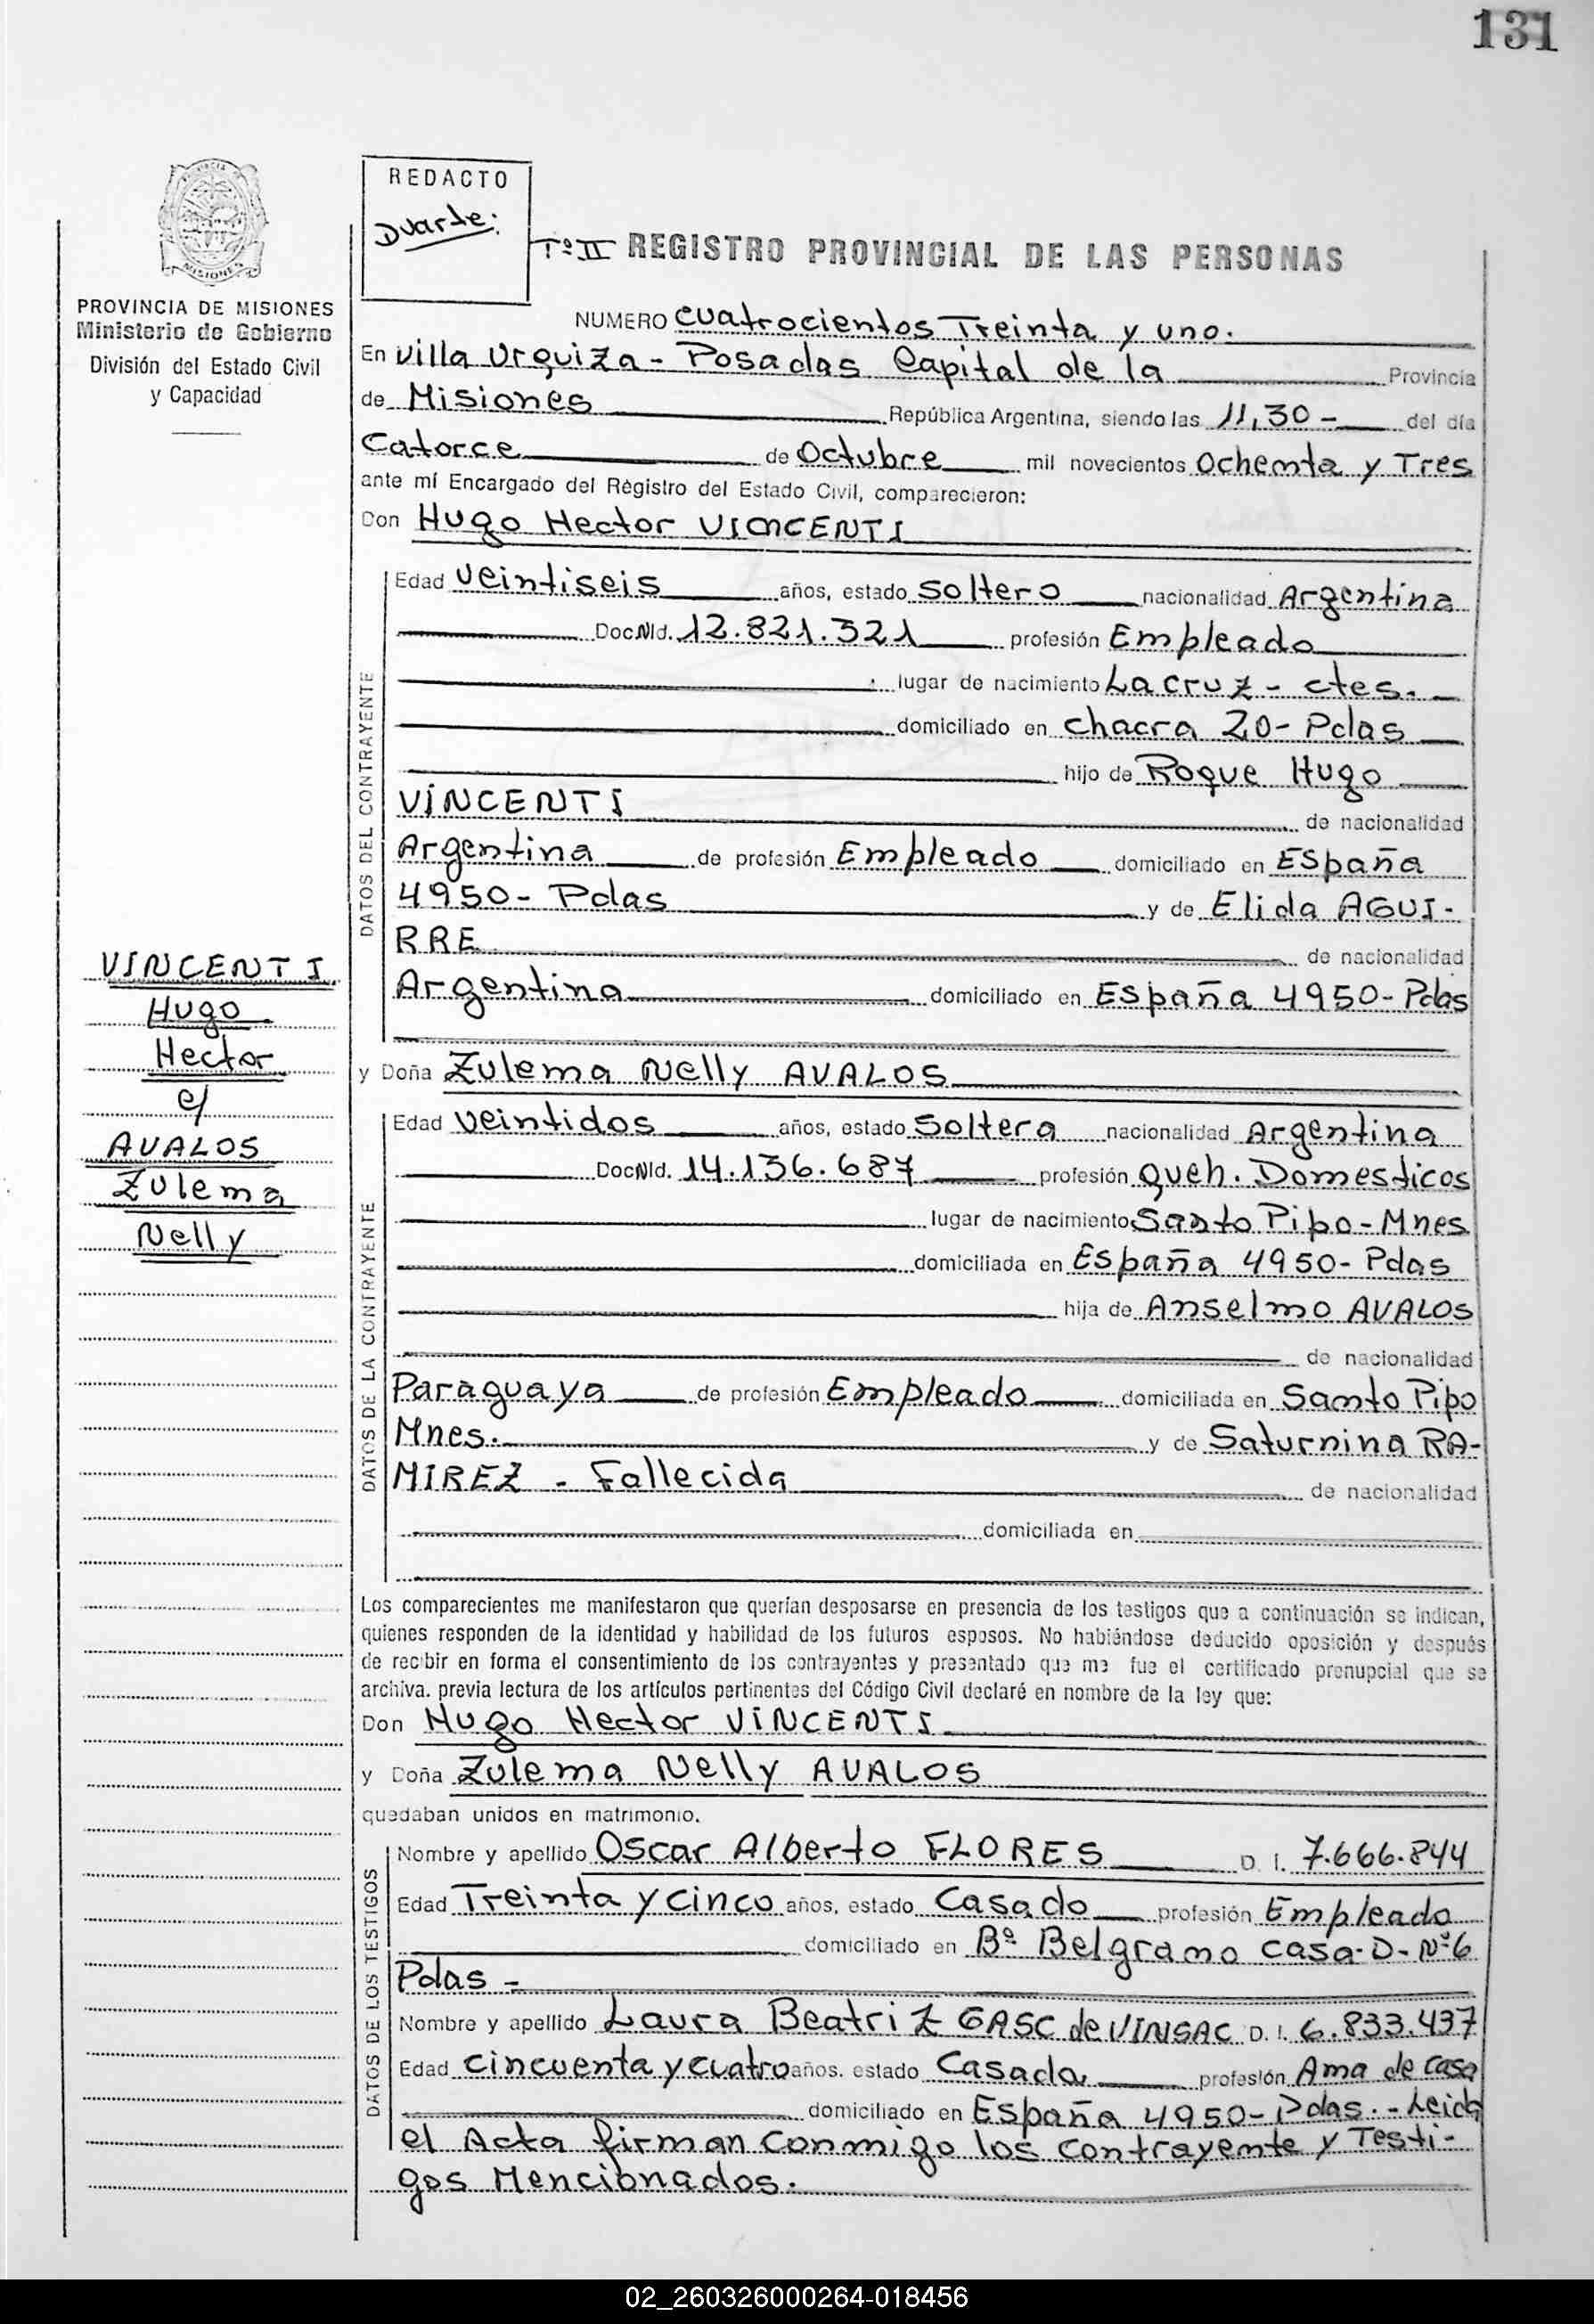 131
REDACTO
Duarte:
Tº II REGISTRO PROVINCIAL DE LAS PERSONAS
PROVINCIA DE MISIONES
Ministerio de Gobierno
División del Estado Civil
y Capacidad
NUMERO cuatrocientos Treinta y uno.
En Villa Urquiza - Posadas Capital de la Provincia
de Misiones República Argentina, siendo las 11,30 - del día
Catorce de Octubre mil novecientos Ochenta y Tres
ante mí Encargado del Registro del Estado Civil, comparecieron:
Don Hugo Hector VINCENTI
DATOS DEL CONTRAYENTE
Edad Veintiseis años, estado Soltero nacionalidad Argentina
Doc.NId. 12.821.321 profesión Empleado
lugar de nacimiento La Cruz - ctes.
domiciliado en Chacra 20 - Pdas
hijo de Roque Hugo
VINCENTI de nacionalidad
Argentina de profesión Empleado domiciliado en España
4950 - Pdas y de Elida AGUI-
RRE de nacionalidad
Argentina domiciliado en España 4950 - Pdas
VINCENTI
Hugo
Hector
c/
AVALOS
Zulema
Nelly
y Doña Zulema Nelly AVALOS
DATOS DE LA CONTRAYENTE
Edad Veintidos años, estado Soltera nacionalidad Argentina
Doc.NId. 14.136.687 profesión Queh. Domesticos
lugar de nacimiento Santo Pipo - Mnes
domiciliada en España 4950 - Pdas
hija de Anselmo AVALOS
de nacionalidad
Paraguaya de profesión Empleado domiciliada en Santo Pipo
Mnes. y de Saturnina RA-
MIREZ - Fallecida de nacionalidad
domiciliada en
Los comparecientes me manifestaron que querían desposarse en presencia de los testigos que a continuación se indican,
quienes responden de la identidad y habilidad de los futuros esposos. No habiéndose deducido oposición y después
de recibir en forma el consentimiento de los contrayentes y presentado que me fue el certificado prenupcial que se
archiva. previa lectura de los artículos pertinentes del Código Civil declaré en nombre de la ley que:
Don Hugo Hector VINCENTI
y Doña Zulema Nelly AVALOS
quedaban unidos en matrimonio.
DATOS DE LOS TESTIGOS
Nombre y apellido Oscar Alberto FLORES D. I. 7.666.844
Edad Treinta y cinco años, estado Casado profesión Empleado
domiciliado en Bº Belgrano casa-D-Nº6
Pdas -
Nombre y apellido Laura Beatriz GASC de VINSAC D. I. 6.833.437
Edad cincuenta y cuatro años. estado Casada profesión Ama de casa
domiciliado en España 4950 - Pdas. - Leida
el Acta firman conmigo los contrayente y Testi-
gos Mencionados.
02_260326000264-018456